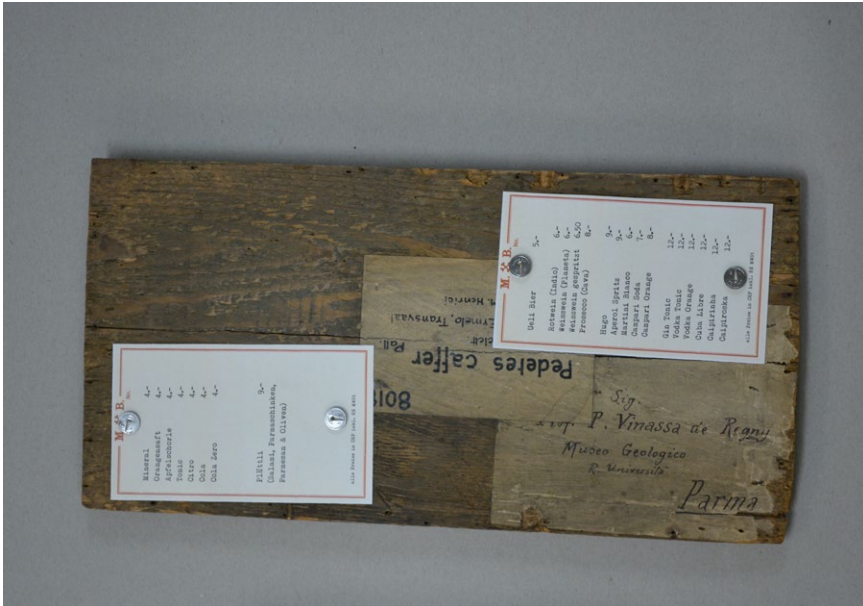 M. & B.
No.
Mineral 4.-
Orangensaft 4.-
Apfelschorle 4.-
Tonic 4.-
Citro 4.-
Cola 4.-
Cola Zero 4.-
Plättli 9.-
(Salami, Parmaschinken,
Parmesan & Oliven)
alle Preise in CHF inkl. 8% MWSt
M. & B.
No.
Ueli Bier 5.-
Rotwein (Indio) 6.-
Weisswein (Planeta) 6.-
Weisswein gespritzt 6.50
Prosecco (Cava) 8.-
Hugo 9.-
Aperol Spritz 9.-
Martini Bianco 6.-
Campari Soda 7.-
Campari Orange 8.-
Gin Tonic 12.-
Vodka Tonic 12.-
Vodka Orange 12.-
Cuba Libre 12.-
Caipirinha 12.-
Caipiroska 12.-
alle Preise in CHF inkl. 8% MWSt
8018
Pedetes caffer Pall.
Ermelo, Transvaal
Henrici
Sig.
P. Vinassa de Regny
Museo Geologico
R. Università
Parma